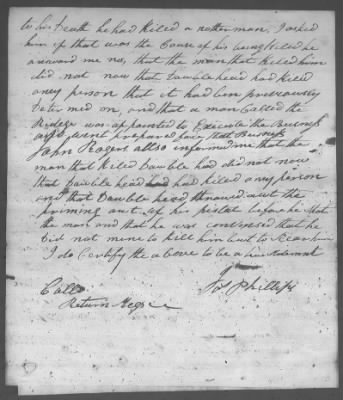 to his Death he had killed a nother man, I asked
him if that was the Cause of his being killed he
answerd me no, that the man that killed him
did not now that Dowble head had killed
aney person that it had ben previously
determed on, and that a man Called the
Ridge was apointed to Execute the Buisness
and went prepared for that Buisness
John Rogers allso informed me that the
man that killed Dowble had did not now
that Dowble head had killed any person
and that Dowble head throwed out the
priming out of his pistol before he shot
the man and that he was convinsed that he
did not mine to kill him but to Scear him
I do Certify the above to be a true statement
Jos Phillips
Return